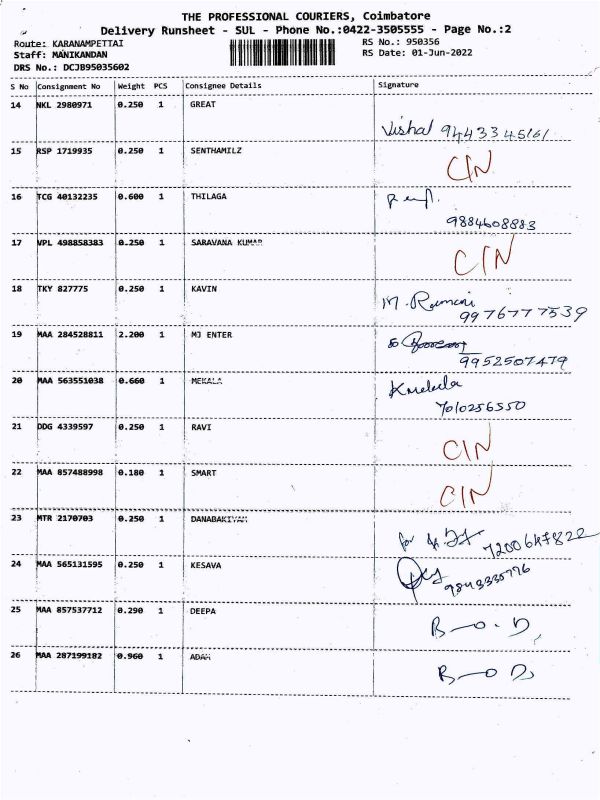 THE PROFESSIONAL COURIERS, Coimbatore
Delivery Runsheet - SUL - Phone No.:0422-3505555 - Page No.:2
Route: KARANAMPETTAI RS No.: 950356
Staff: MANIKANDAN RS Date: 01-Jun-2022
DRS No.: DCJB95035602
S No Consignment No Weight PCS Consignee Details Signature
14 NKL 2980971 0.250 1 GREAT
Vishal 9443345161
15 RSP 1719935 0.250 1 SENTHAMILZ
C/N
16 TCG 40132235 0.600 1 THILAGA
9884608883
17 VPL 498858383 0.250 1 SARAVANA KUMAR
C/N
18 TKY 827775 0.250 1 KAVIN
M. Ramani
9976777539
19 MAA 284528811 2.200 1 MJ ENTER
9952507479
20 MAA 563551038 0.660 1 MEKALA
7010256550
21 DDG 4339597 0.250 1 RAVI
C/N
22 MAA 857488998 0.180 1 SMART
C/N
23 MTR 2170703 0.250 1 DANABAKIYAM
for
24 MAA 565131595 0.250 1 KESAVA
9843335776
25 MAA 857537712 0.290 1 DEEPA
B-O-D,
26 MAA 287199182 0.960 1 ADAM
B-O D,